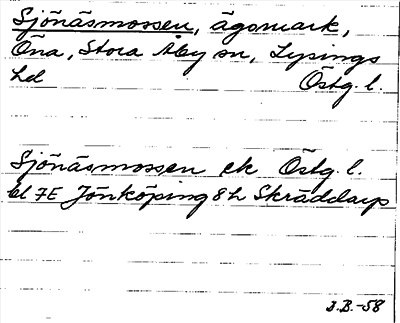 Sjönäsmossen, ägomark,
Öna, Stora Åby sn, Lysings
hd Östg. l.
Sjönäsmossen ek Östg. l.
bl 7E Jönköping 8 h Skräddarp
J.B.-58